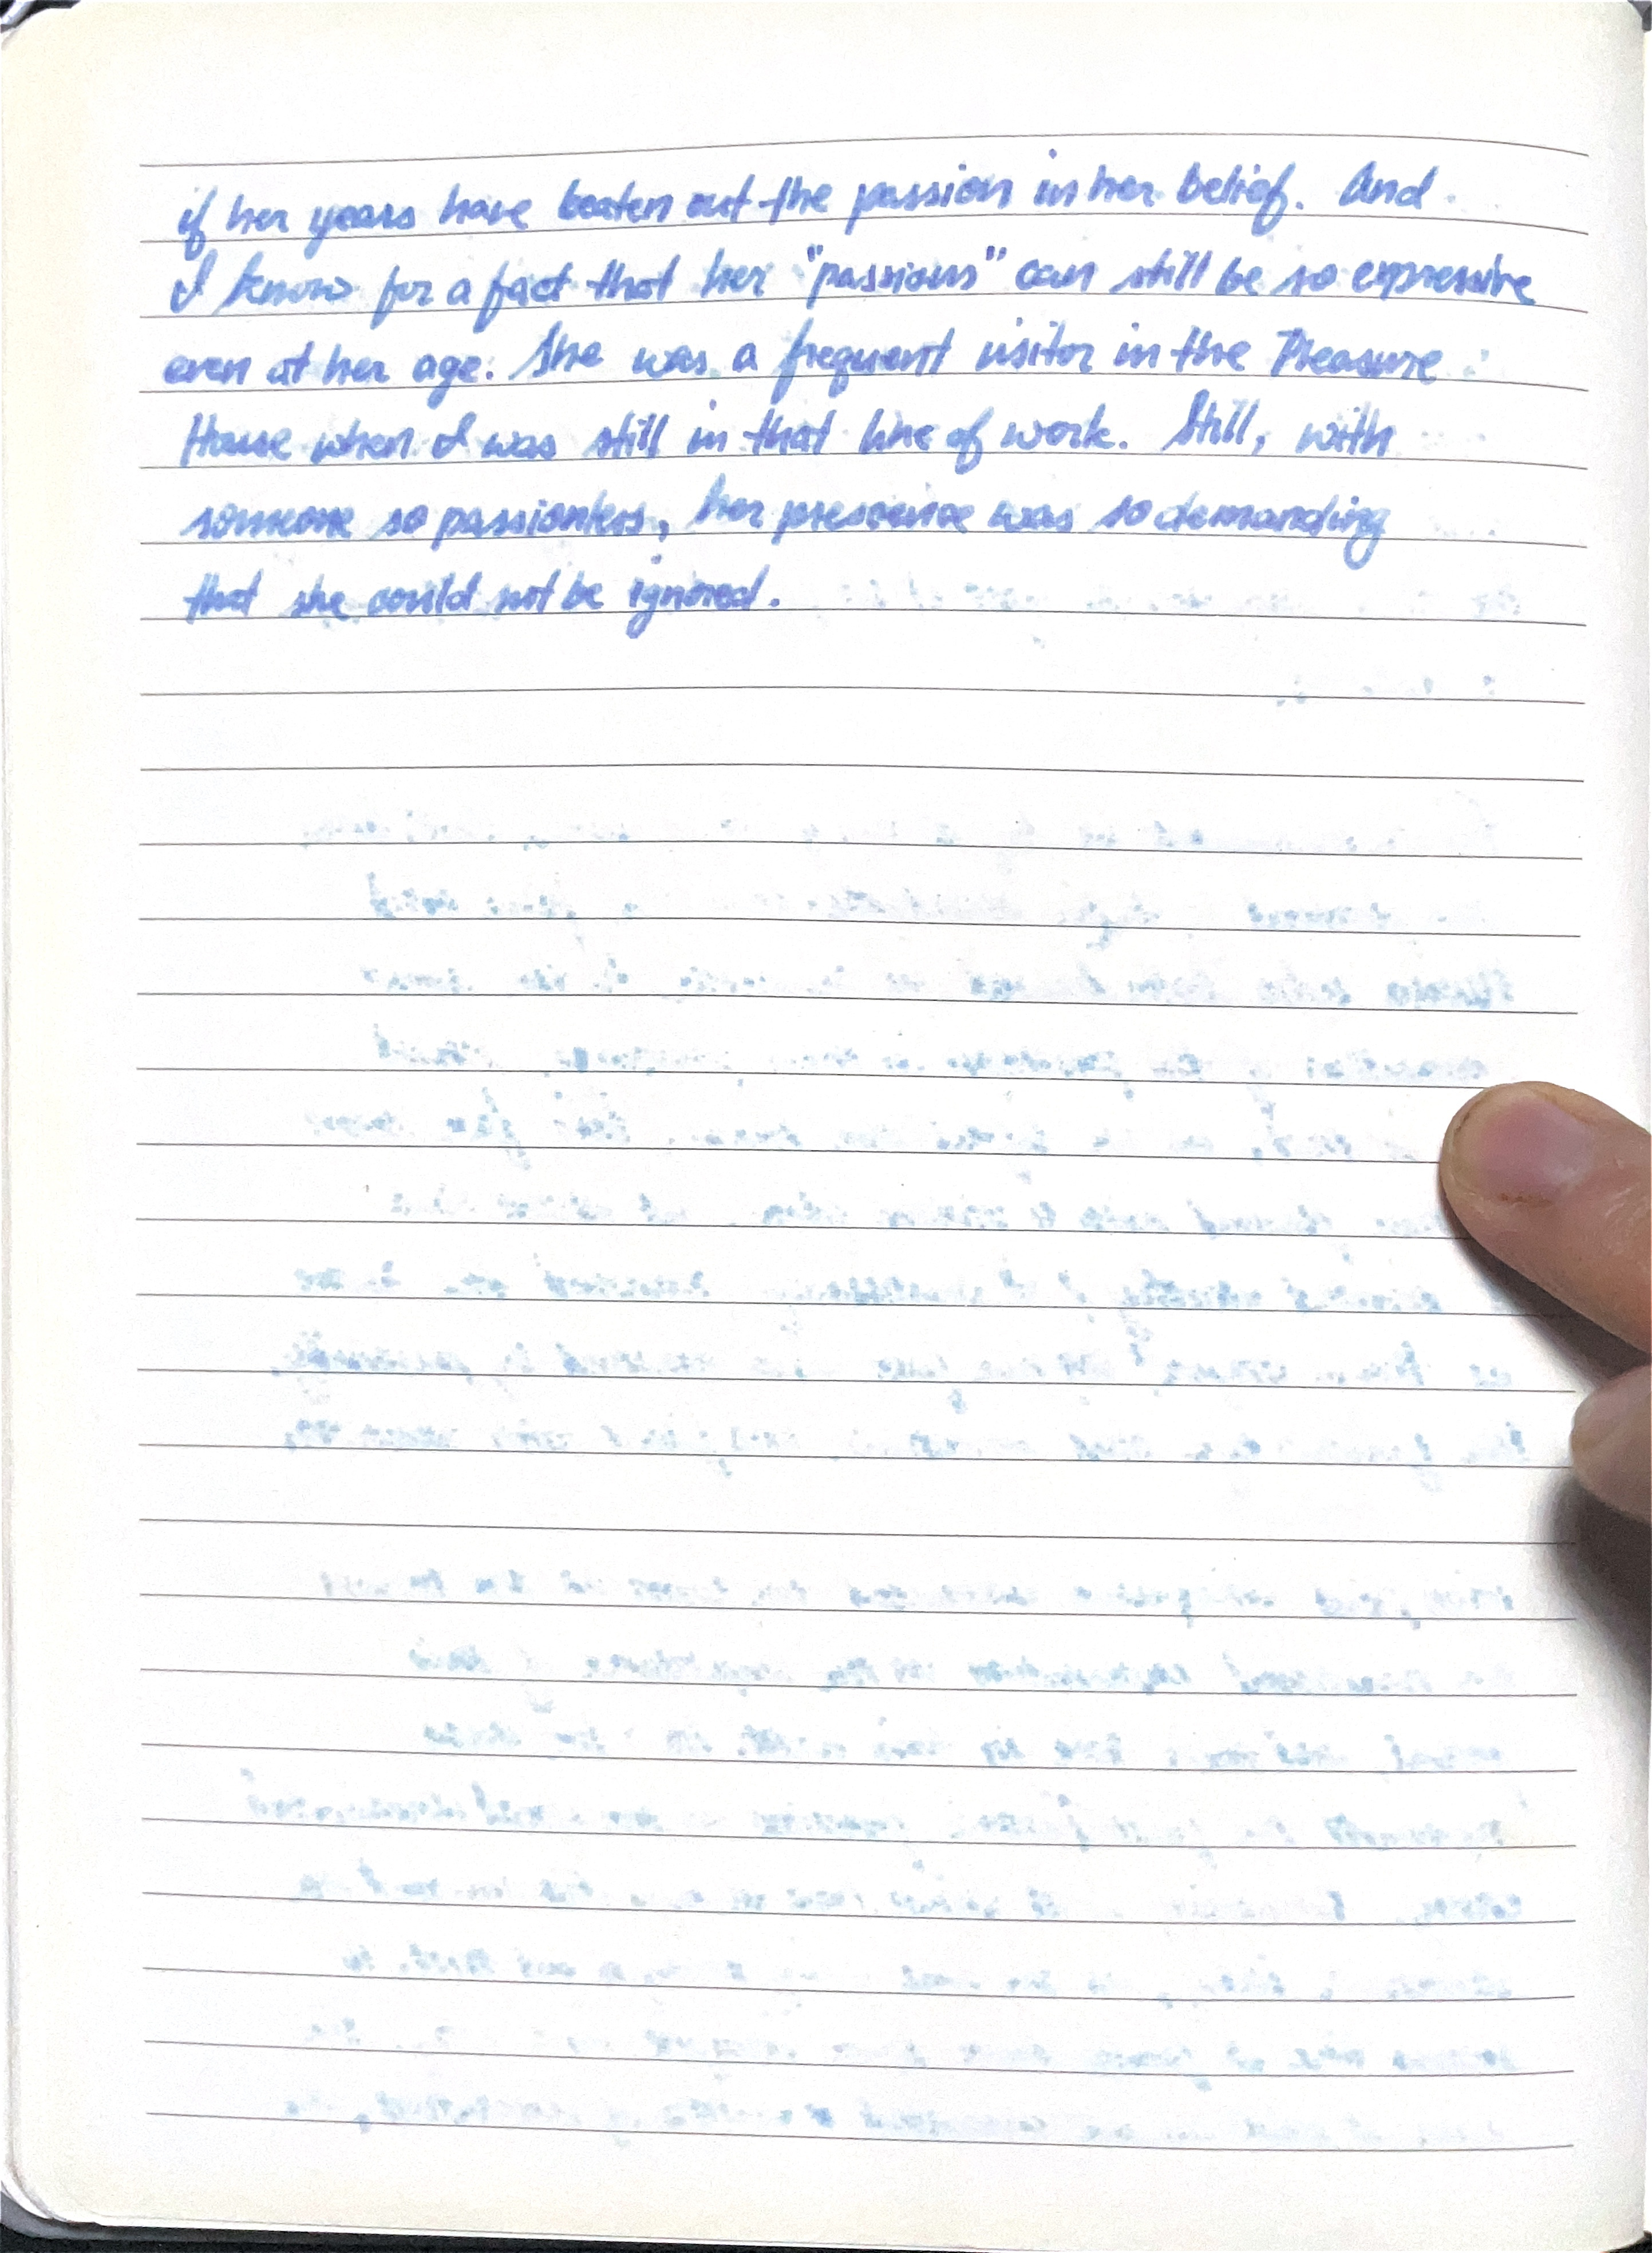 if her years have beaten out the passion in her belief. And
I know for a fact that her "passions" can still be so expressive
even at her age. She was a frequent visitor in the Pleasure
House when I was still in that line of work. Still, with
someone so passionless, her presence was so demanding
that she could not be ignored.